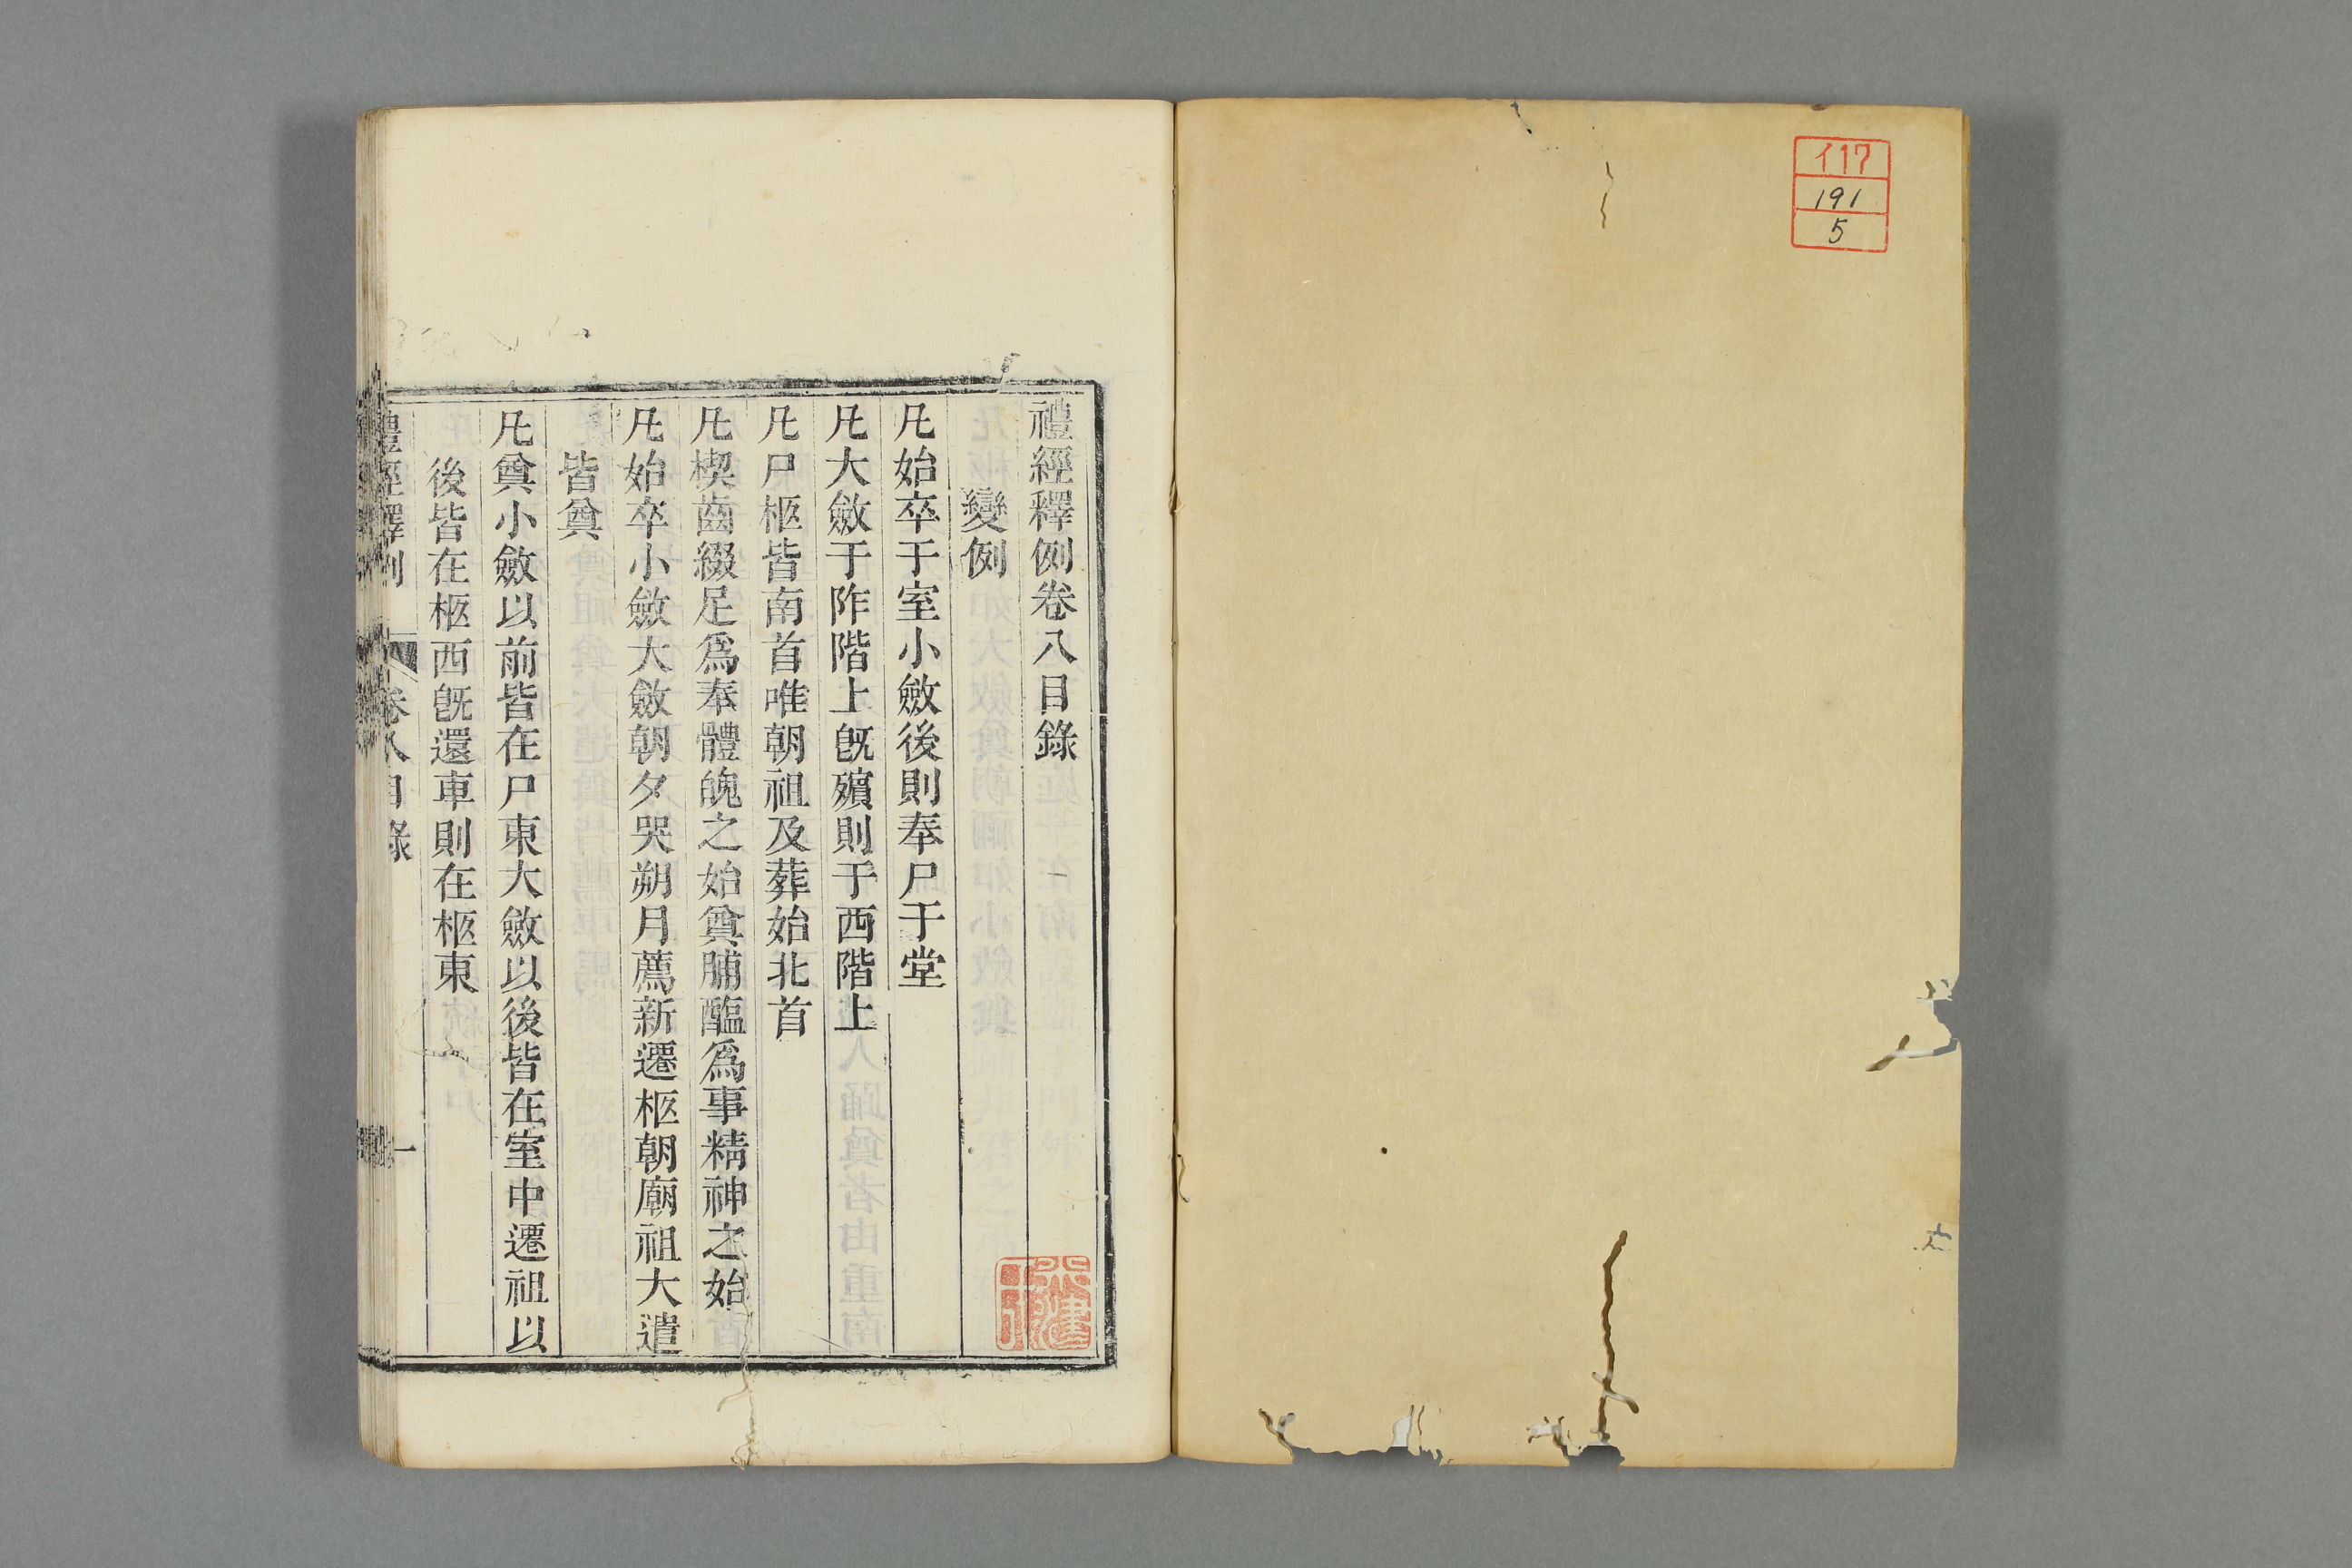 イ17
191
5
禮經釋例卷八目錄
變例
凡始卒于室小斂後則奉尸于堂
凡大斂于阼階上旣殯則于西階上
凡尸柩皆南首唯朝祖及葬始北首
凡楔齒綴足爲奉體魄之始奠脯醢爲事精神之始
凡始卒小斂大斂朝夕哭朔月薦新遷柩朝廟祖大遣
皆奠
凡奠小斂以前皆在尸東大斂以後皆在室中遷祖以
後皆在柩西旣還車則在柩東
禮經釋例 卷八目錄 一